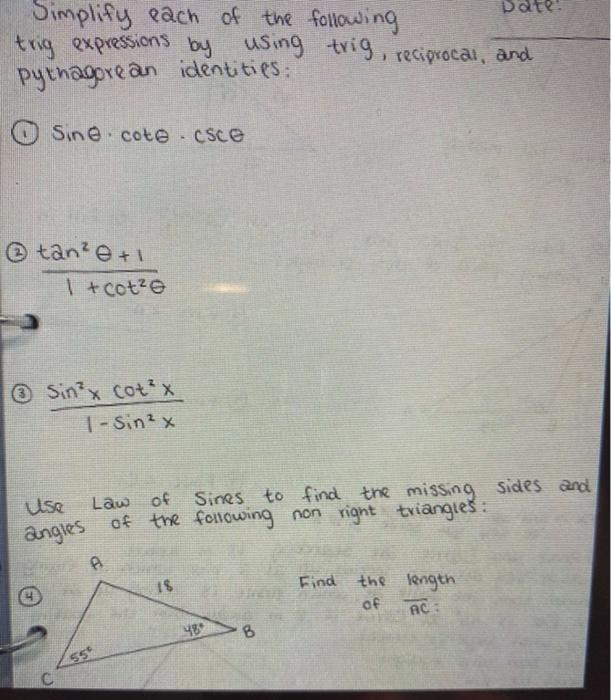 Simplify each of the following
Date:
trig expressions by using trig, reciprocal, and
pythagorean identities:
① sinθ · cotθ · cscθ
② tan²θ + 1
1 + cot²θ
③ sin²x cot²x
1 - sin²x
Use Law of Sines to find the missing sides and
angles of the following non right triangles:
④
A
18
48°
B
55°
C
Find the length
of AC: